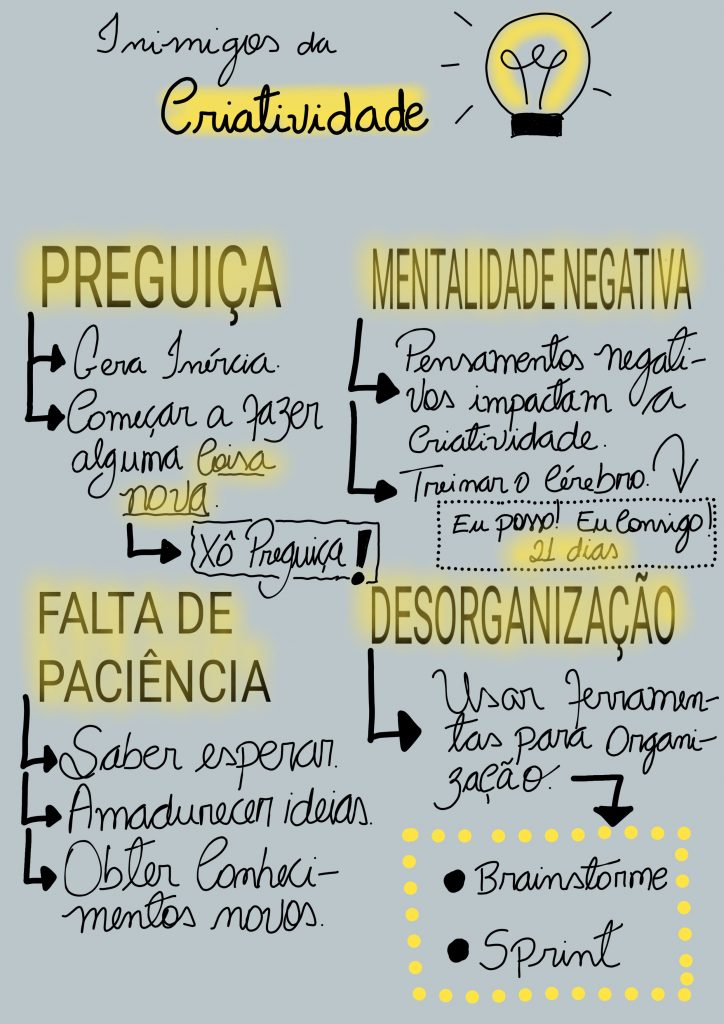 Inimigos da
Criatividade
PREGUIÇA
Gera Inércia.
Começar a fazer
alguma coisa
nova.
Xô Preguiça!
MENTALIDADE NEGATIVA
Pensamentos negati-
vos impactam a
Criatividade.
Treinar o Cérebro.
Eu posso! Eu Consigo!
21 dias
FALTA DE
PACIÊNCIA
Saber esperar.
Amadurecer ideias.
Obter Conheci-
mentos novos.
DESORGANIZAÇÃO
Usar ferramen-
tas para Organi-
zação.
Brainstorme
Sprint